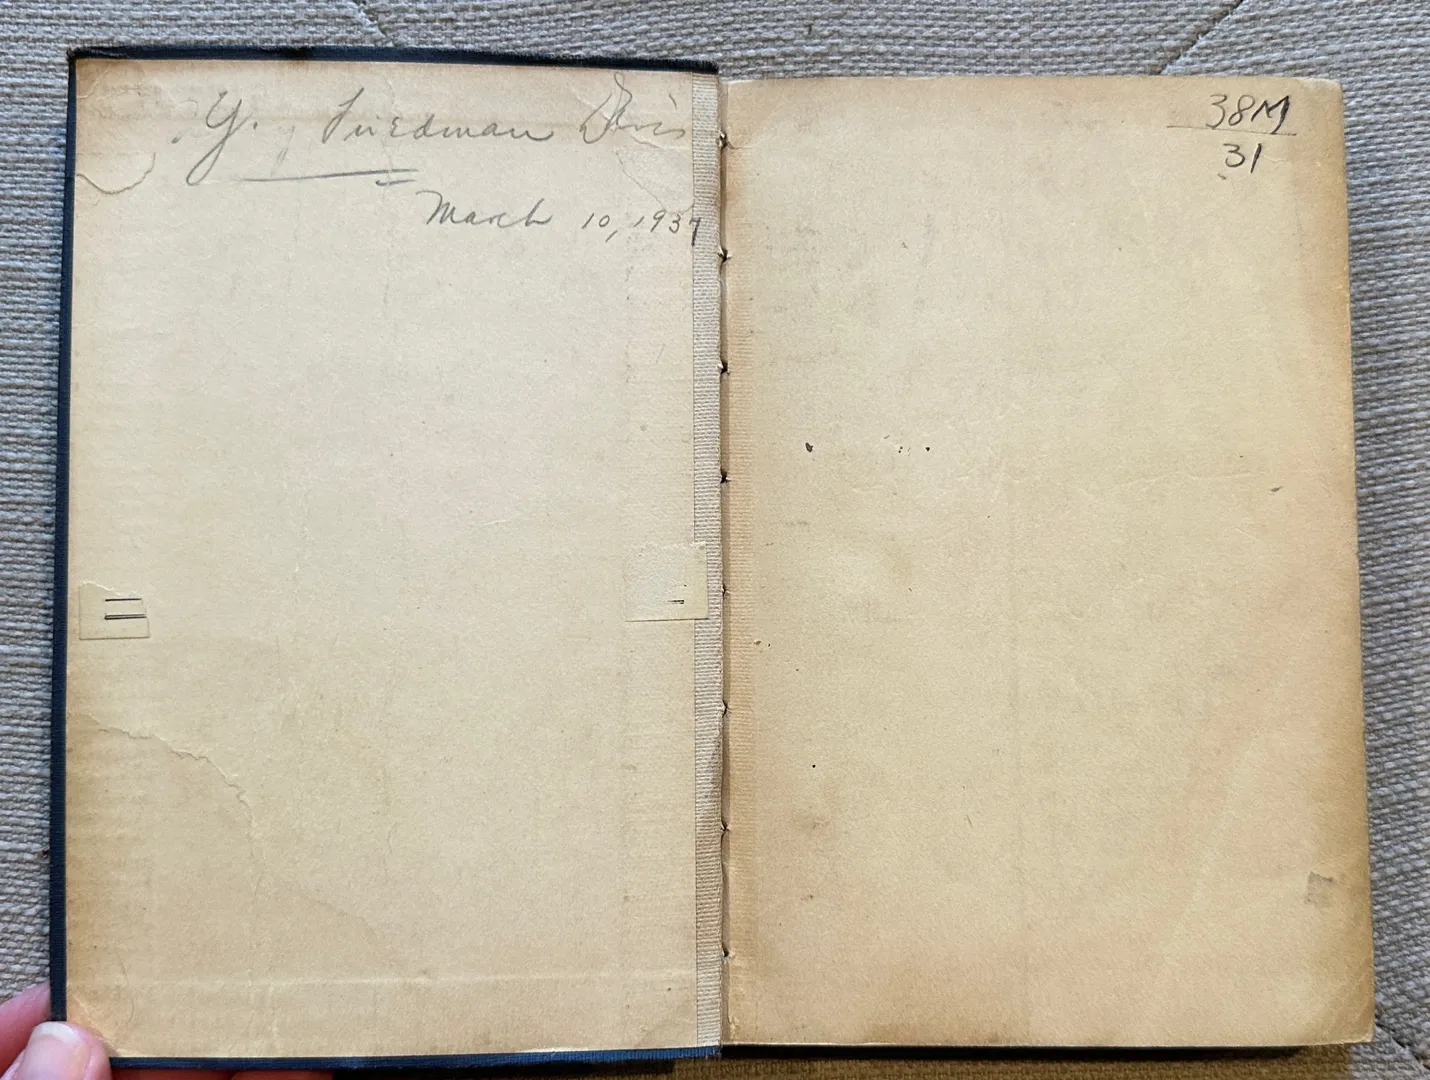 Y. Friedman Davis
March 10, 1937
38M
31